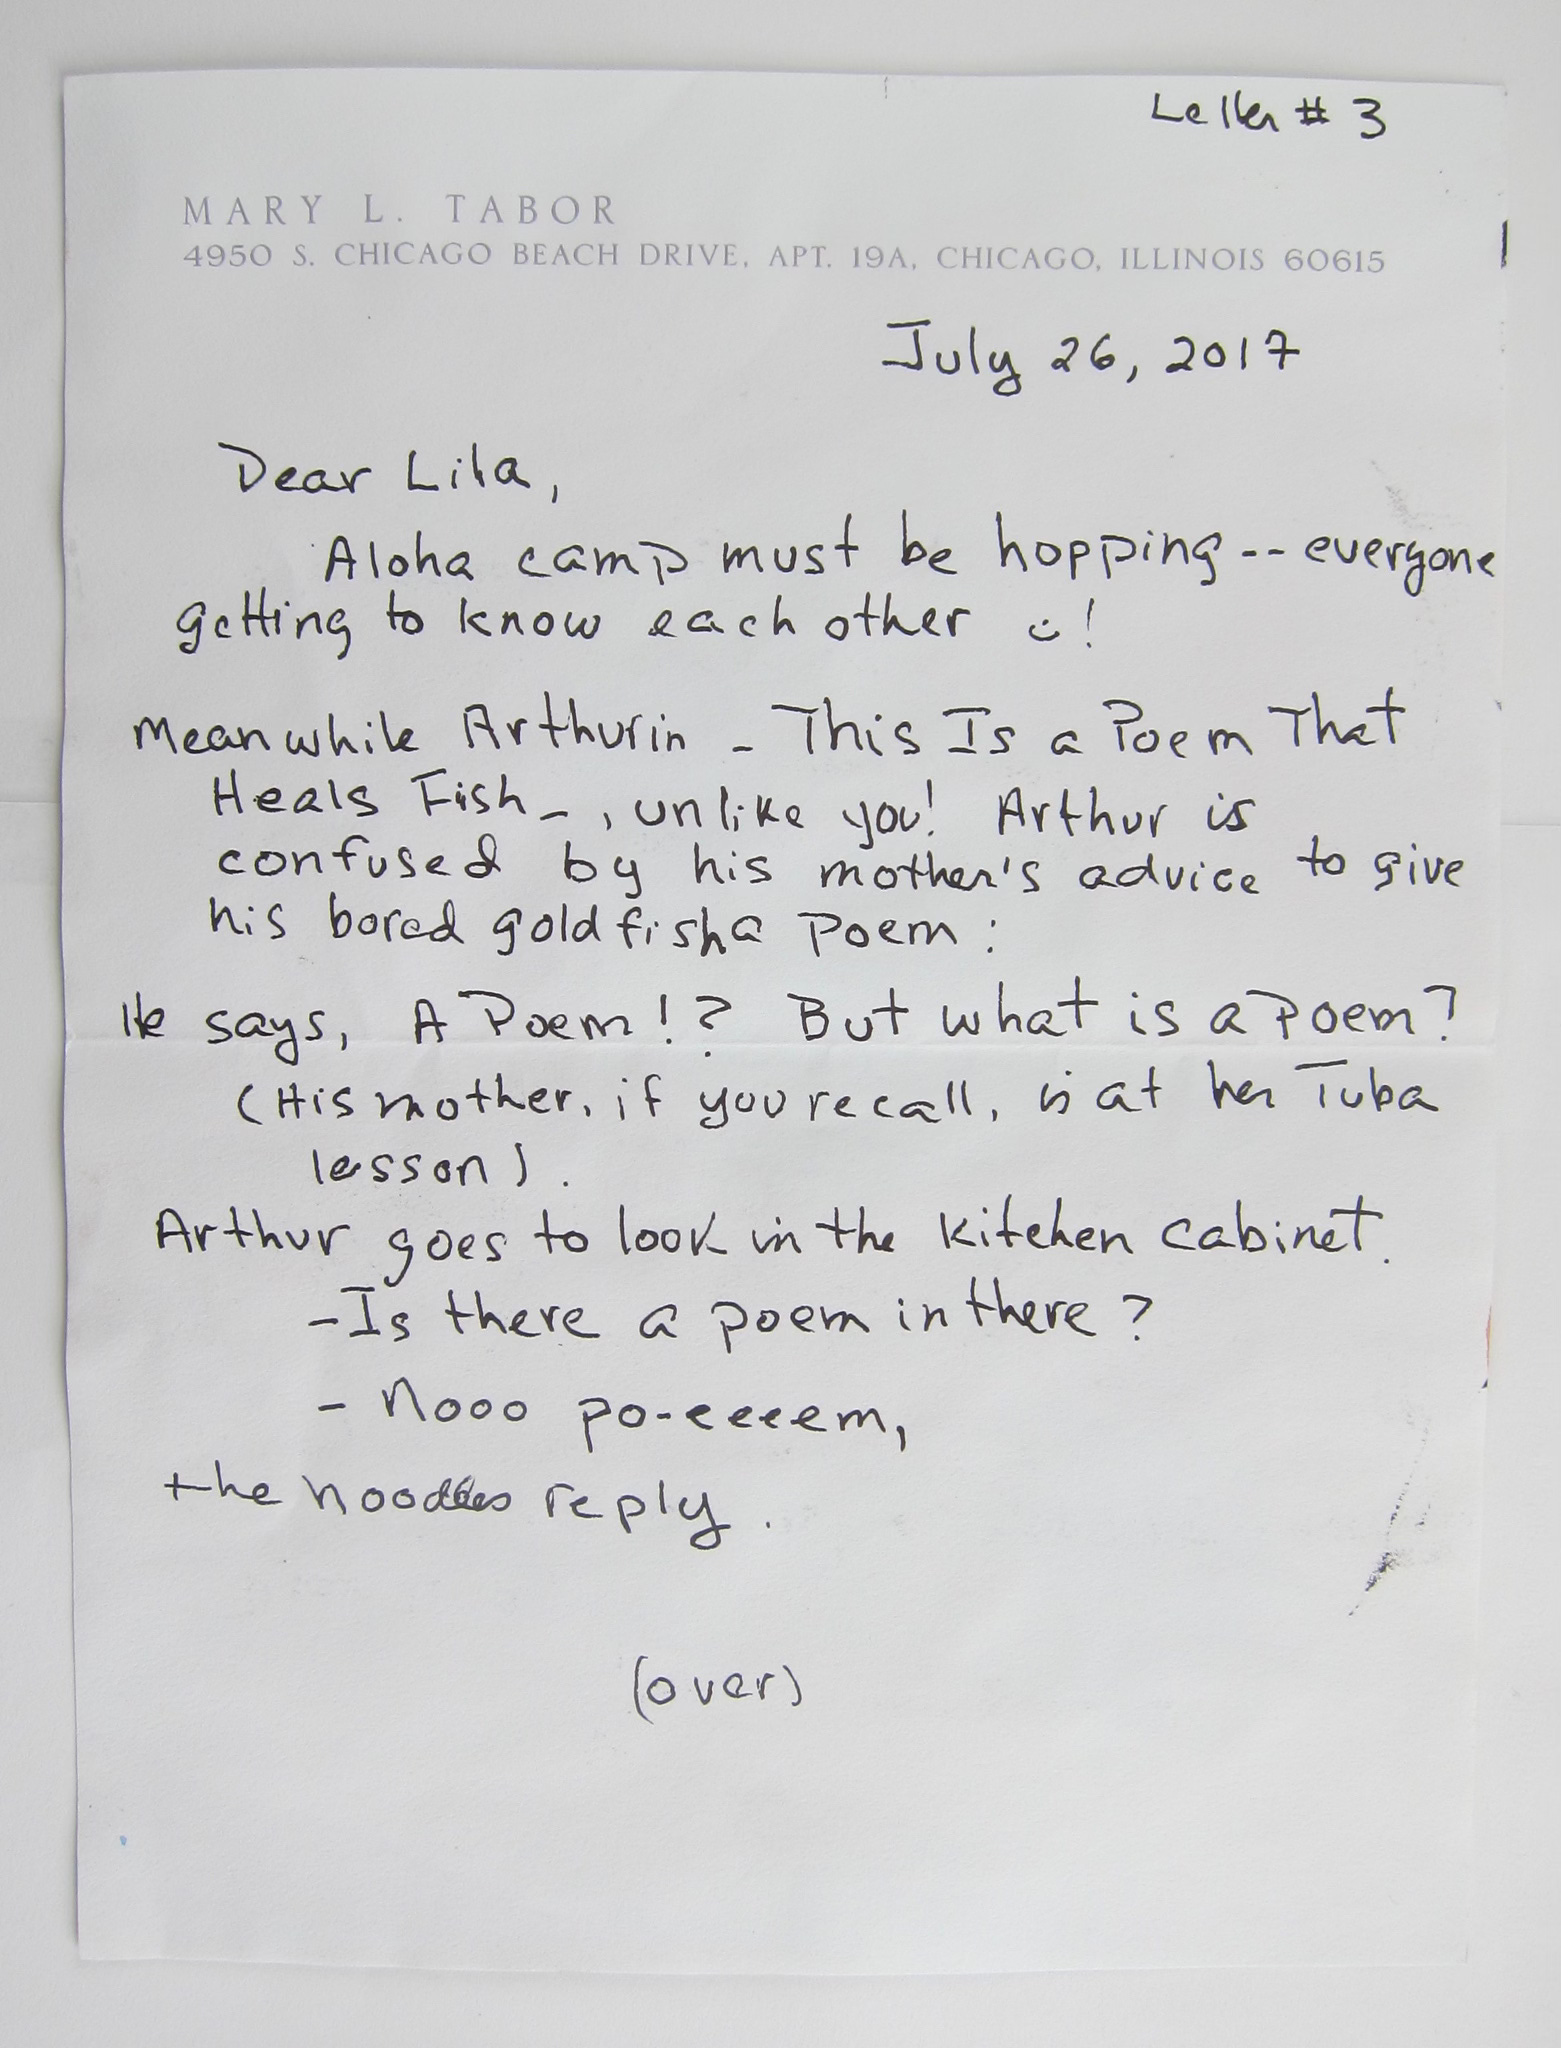 Letter # 3
MARY L. TABOR
4950 S. CHICAGO BEACH DRIVE, APT. 19A, CHICAGO, ILLINOIS 60615
July 26, 2017
Dear Lila,
Aloha camp must be hopping -- everyone
getting to know each other :)!
Meanwhile Arthur in - This Is a Poem That
Heals Fish - , unlike you! Arthur is
confused by his mother's advice to give
his bored goldfish a poem:
He says, A Poem!? But what is a poem?
(His mother, if you recall, is at her Tuba
lesson).
Arthur goes to look in the kitchen cabinet.
- Is there a poem in there?
- Nooo po-eeeem,
the noodles reply.
(over)